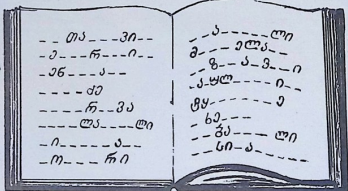 _ _ თა _ _ _ ვი _ _
ე _ _ _ რ _ _ ი _ _
ენ _ _ _ ა _ _
_ _ _ _ ძე
_ _ _ _ _ რ _ _ ვა
_ _ _ _ ლა _ _ _ ლი
_ ი _ _ _ _ _ ა _ _
_ ო _ _ _ _ რი
_ _ _ ა _ _ _ _ _ ლი
მ _ _ _ _ ელა _ _
_ _ ზ _ _ ა _ ვ _ ი
_ ა _ ყლ _ _ _ _ ი _
ტყ _ _ _ _ _ _ _ ე
_ ხე _ _ _
_ _ _ ვა _ _ _ ლი
_ _ სი _ ა _ _ _ _